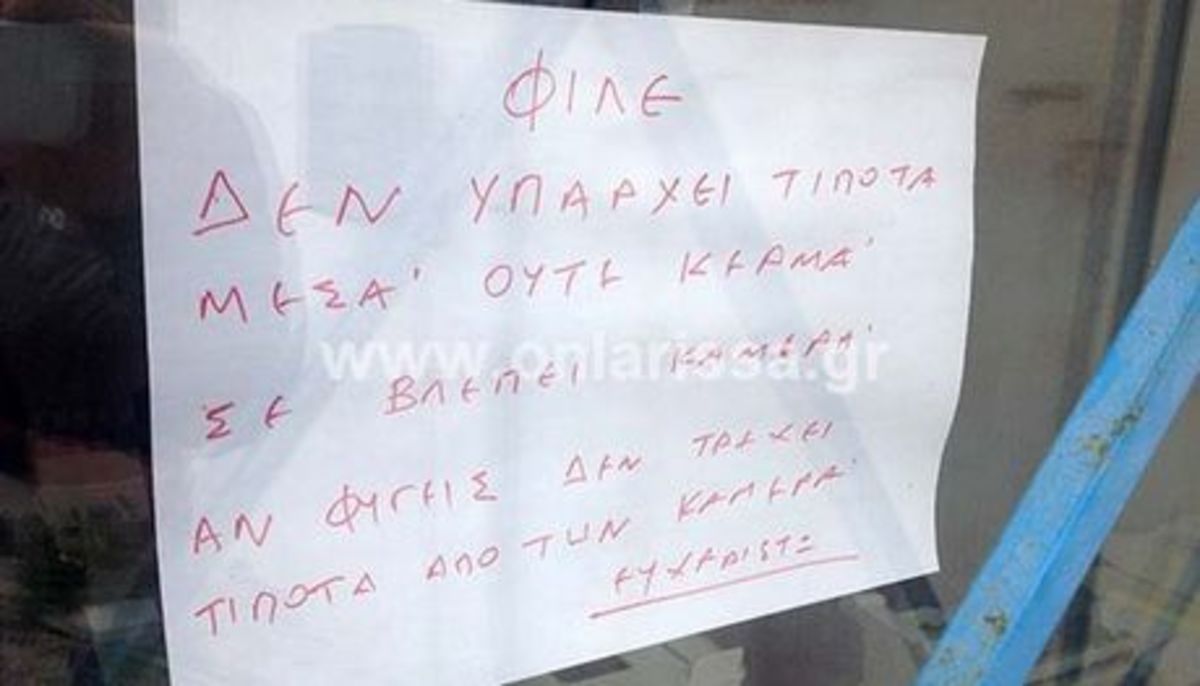 ΦΙΛΕ
ΔΕΝ ΥΠΑΡΧΕΙ ΤΙΠΟΤΑ
ΜΕΣΑ' ΟΥΤΕ ΚΕΡΜΑ'
www.onlarissa.gr
ΣΕ ΒΛΕΠΕΙ ΚΑΜΕΡΑ'
ΑΝ ΦΥΓΕΙΣ ΔΕΝ ΤΡΕΧΕΙ
ΤΙΠΟΤΑ ΑΠΟ ΤΗΝ ΚΑΜΕΡΑ'
ΕΥΧΑΡΙΣΤΩ